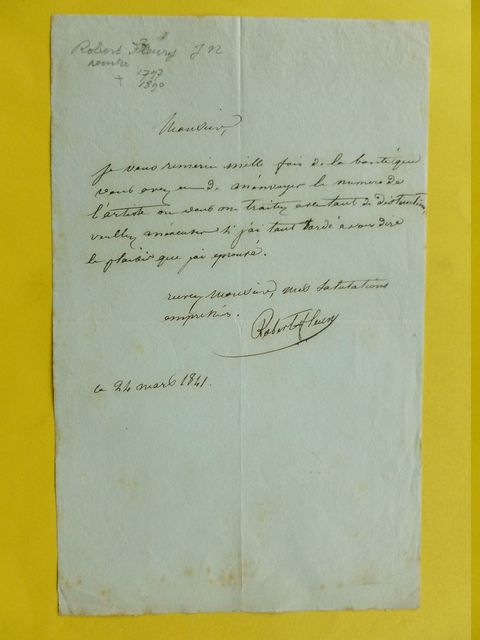 Robert Fleury J N
peintre
1797
+ 1890
Monsieur,
je vous remercie mille fois de la bonté que
vous avez eu de m'envoyer le numero de
l'artiste ou vous me traitez avec tant de distinction,
veuillez m'excuser si j'ai tant tardé a vous dire
le plaisir que j'ai eprouvé.
recevez Monsieur, mes salutations
empressées.
Robert Fleury
ce 24 mars 1841.